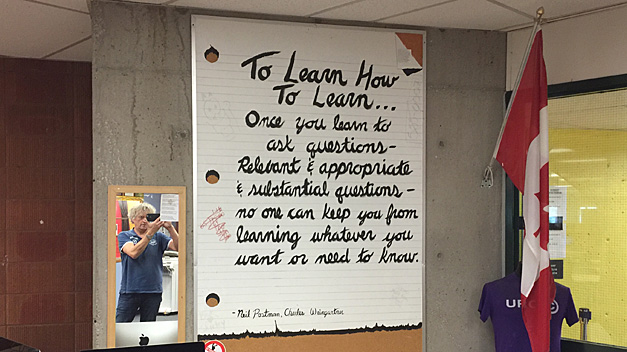 To Learn How
To Learn...
Once you learn to
ask questions-
Relevant & appropriate
& substantial questions-
no one can keep you from
learning whatever you
want or need to know.
- Neil Postman, Charles Weingartner